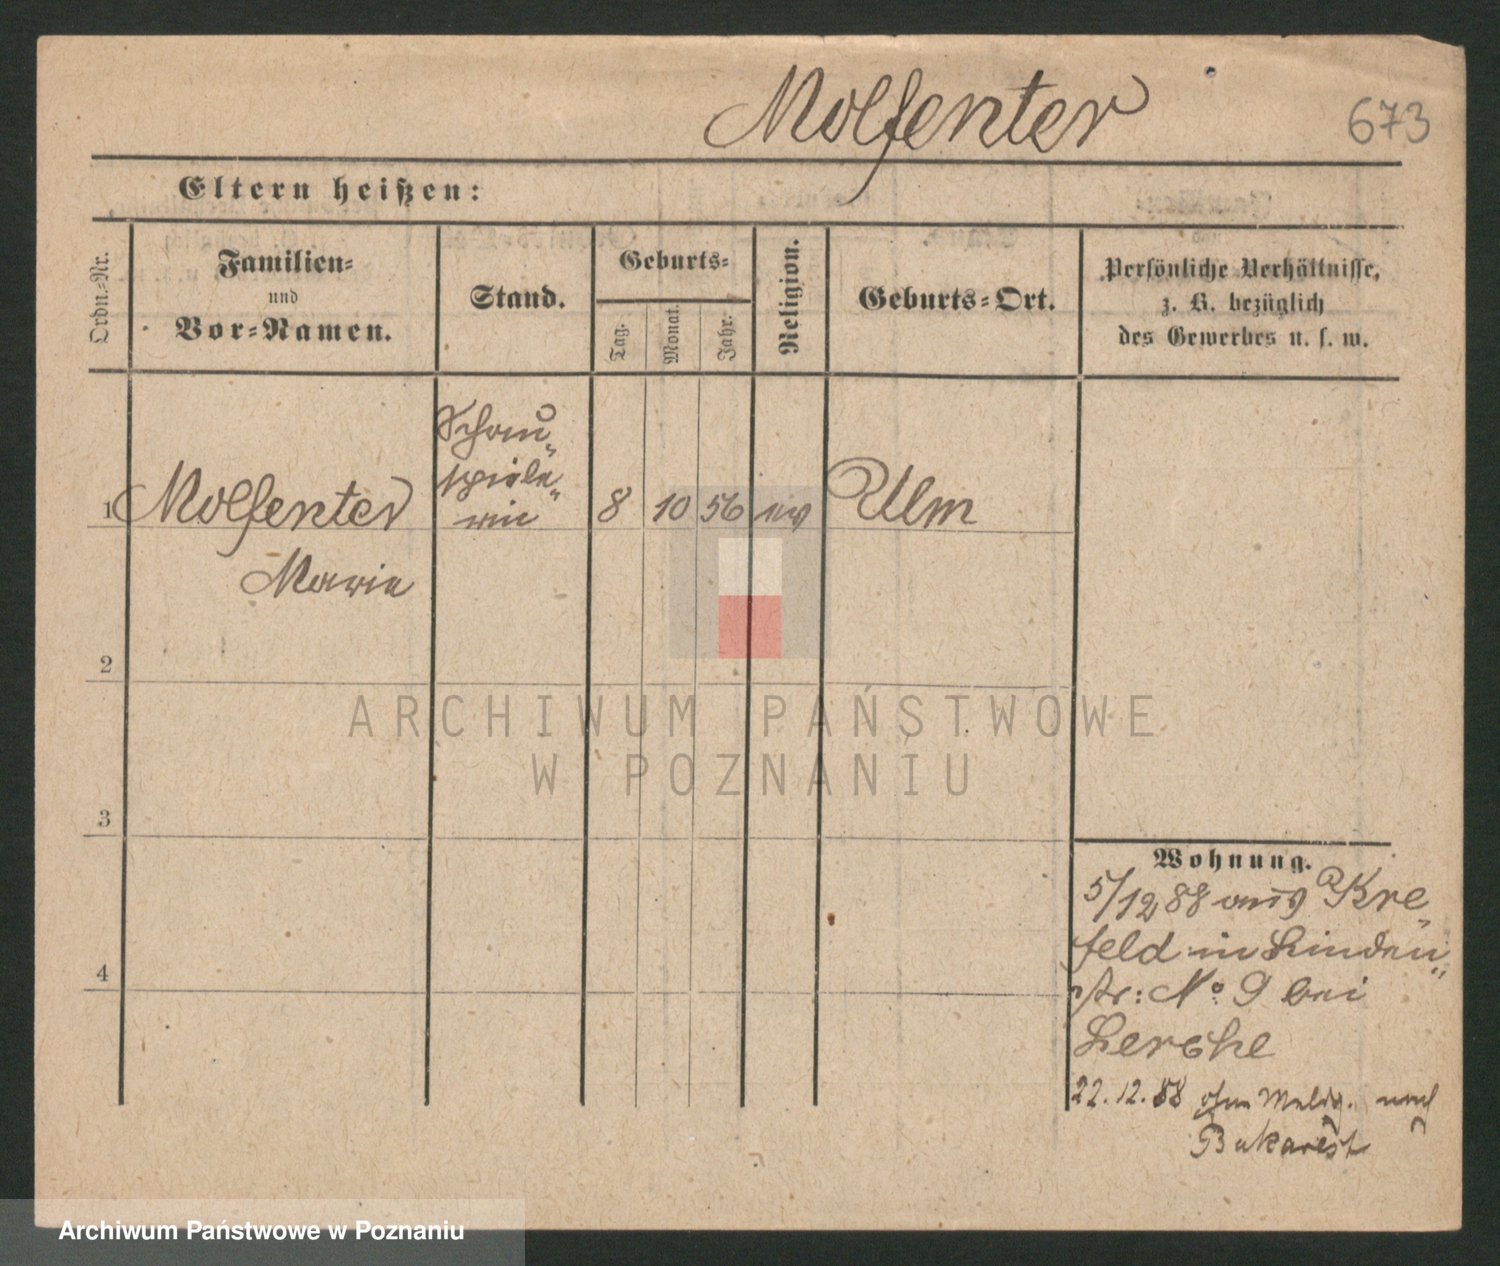 Molfenter
673
Eltern heißen:
Ordn.-Nr.
Familien-
und
Vor-Namen.
Stand.
Geburts-
Tag.
Monat.
Jahr.
Religion.
Geburts-Ort.
Persönliche Verhältnisse,
z. B. bezüglich
des Gewerbes u. s. w.
1 Molfenter
Marie
Schau-
spiele-
rin
8 10 56 ev Ulm
2
3
4
Wohnung.
5/12 88 aus Kre-
feld in Linden-
str: No 9 bei
Lerche
22.12.88 ohne Meldg. nach
Bukarest
ARCHIWUM PAŃSTWOWE
W POZNANIU
Archiwum Państwowe w Poznaniu